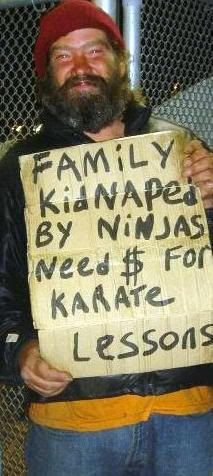 FAMILY
KidNAPed
BY NiNJAS
Need $ FoR
KARATe
Lessons